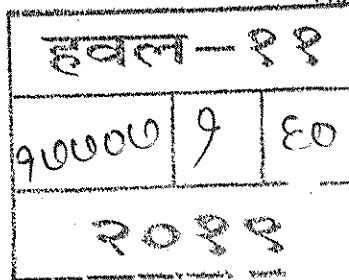 हवल-११
१७७०७ १ ६०
२०११